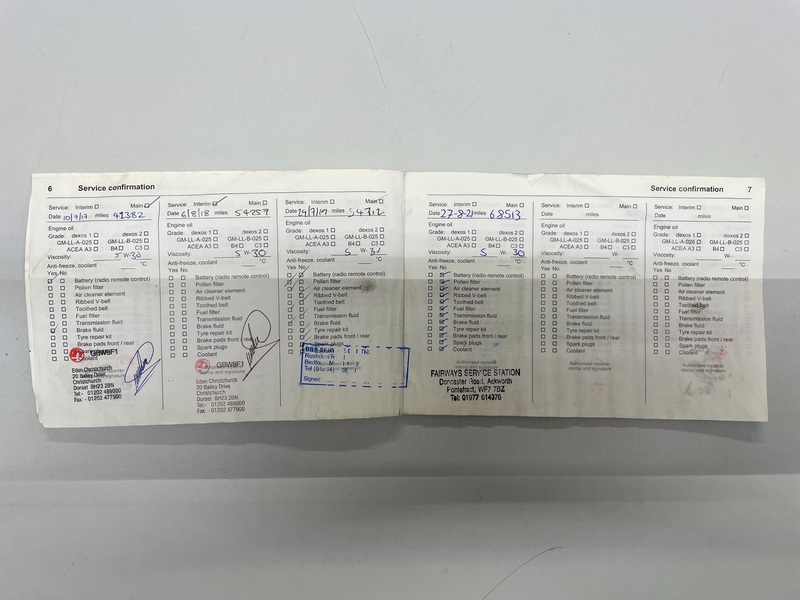 6 Service confirmation
Service: Interim Main
Date 10/7/17 miles 41382
Engine oil
Grade: dexos 1 dexos 2
GM-LL-A-025 GM-LL-B-025
ACEA A3 B4 C3
Viscosity: 5 W-30
Anti-freeze, coolant °C
Yes No
Battery (radio remote control)
Pollen filter
Air cleaner element
Ribbed V-belt
Toothed belt
Fuel filter
Transmission fluid
Brake fluid
Tyre repair kit
Brake pads front / rear
GBW8F1
Eden Christchurch
20 Bailey Drive
Christchurch
Dorset BH23 2BN
Tel:- 01202 489000
Fax: - 01202 477900
Service: Interim Main
Date 6/8/18 miles 54257
Engine oil
Grade: dexos 1 dexos 2
GM-LL-A-025 GM-LL-B-025
ACEA A3 B4 C3
Viscosity: 5 W-30
Anti-freeze, coolant °C
Yes No
Battery (radio remote control)
Pollen filter
Air cleaner element
Ribbed V-belt
Toothed belt
Fuel filter
Transmission fluid
Brake fluid
Tyre repair kit
Brake pads front / rear
Spark plugs
Coolant
GBW8F1
Eden Christchurch
20 Bailey Drive
Christchurch
Dorset BH23 2BN
Tel:- 01202 489000
Fax: - 01202 477900
Service: Interim Main
Date miles 54712
Engine oil
Grade: dexos 1 dexos 2
GM-LL-A-025 GM-LL-B-025
ACEA A3 B4 C3
Viscosity: 5 W-
Anti-freeze, coolant °C
Yes No
Battery (radio remote control)
Pollen filter
Air cleaner element
Ribbed V-belt
Toothed belt
Fuel filter
Transmission fluid
Brake fluid
Tyre repair kit
Brake pads front / rear
Signed
Service confirmation 7
Service: Interim Main
Date 27-8-21 miles 68513
Engine oil
Grade: dexos 1 dexos 2
GM-LL-A-025 GM-LL-B-025
ACEA A3 B4 C3
Viscosity: 5 W- 30
Anti-freeze, coolant °C
Yes No
Battery (radio remote control)
Pollen filter
Air cleaner element
Ribbed V-belt
Toothed belt
Fuel filter
Transmission fluid
Brake fluid
Tyre repair kit
Brake pads front / rear
Spark plugs
Coolant
Authorised repairer
stamp and signature
FAIRWAYS SERVICE STATION
Doncaster Road, Ackworth
Pontefract, WF7 7BZ
Tel: 01977 614376
Service: Interim Main
Date miles
Engine oil
Grade: dexos 1 dexos 2
GM-LL-A-025 GM-LL-B-025
ACEA A3 B4 C3
Viscosity: W-
Anti-freeze, coolant °C
Yes No
Battery (radio remote control)
Pollen filter
Air cleaner element
Ribbed V-belt
Toothed belt
Fuel filter
Transmission fluid
Brake fluid
Tyre repair kit
Brake pads front / rear
Spark plugs
Coolant
Authorised repairer
stamp and signature
Service: Interim Main
Date miles
Engine oil
Grade: dexos 1 dexos 2
GM-LL-A-025 GM-LL-B-025
ACEA A3 B4 C3
Viscosity: W-
Anti-freeze, coolant °C
Yes No
Battery (radio remote control)
Pollen filter
Air cleaner element
Ribbed V-belt
Toothed belt
Fuel filter
Transmission fluid
Brake fluid
Tyre repair kit
Brake pads front / rear
Spark plugs
Coolant
Authorised repairer
stamp and signature